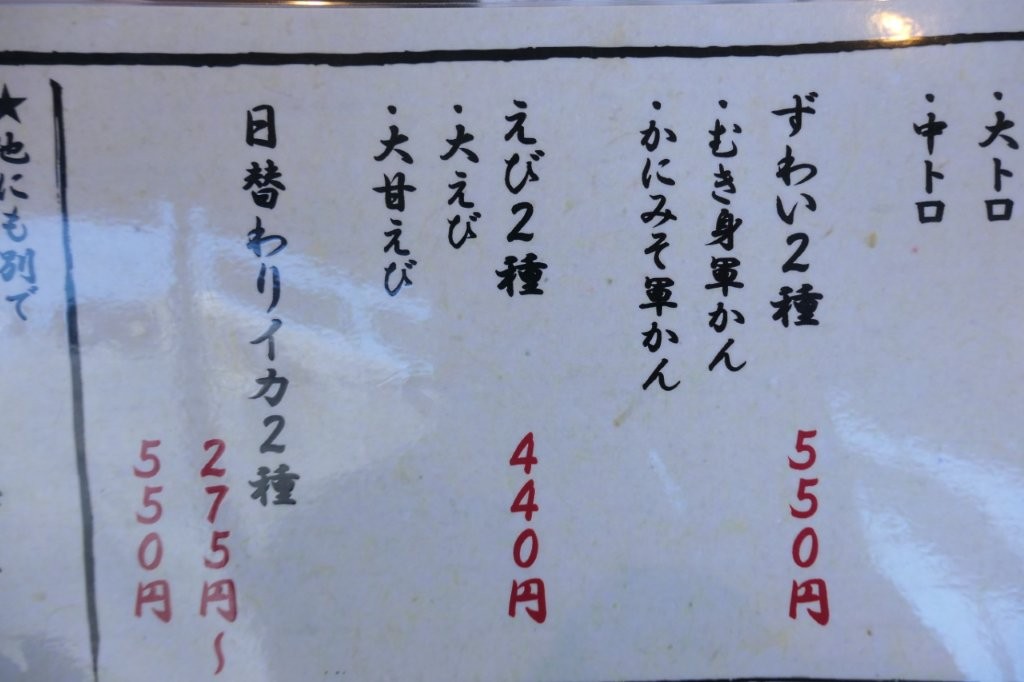 ・大トロ
・中トロ
ずわい2種
550円
・むき身軍かん
・かにみそ軍かん
えび2種
440円
・大えび
・大甘えび
日替わりイカ2種
275円～
550円
★他にも別で